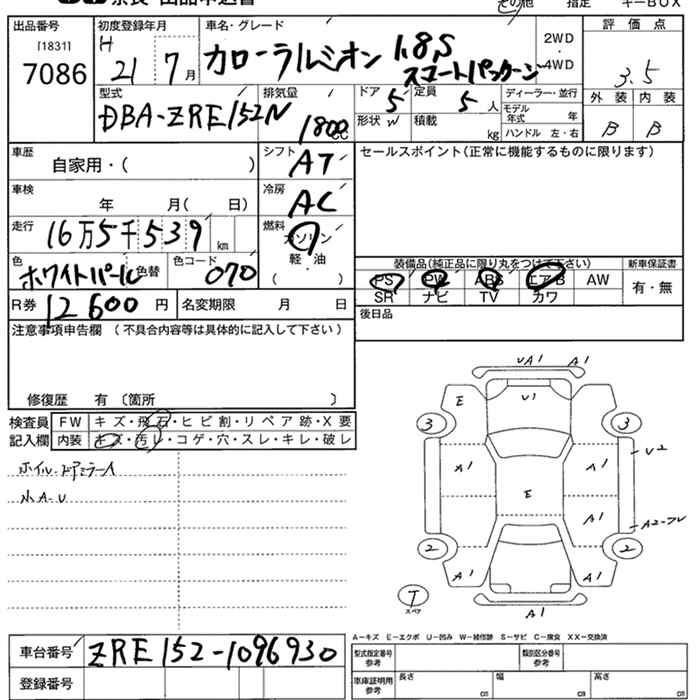 その他 指定 キーBOX
出品番号 初度登録年月 車名・グレード 評価点
[1831] H 21 7月 カローラルミオン 1.8S 2WD・4WD
7086 スマートパッケージ 3.5
型式 排気量 ドア 5 定員 5人 ディーラー・並行 外装 内装
DBA-ZRE152N 1800cc 形状 W 積載 kg モデル年式 年 B B
ハンドル 左・右
車歴 自家用・( ) シフト AT セールスポイント(正常に機能するものに限ります)
車検 年 月( 日) 冷房 AC
走行 16万5千539km 燃料 ガソリン
軽・油
( )
色 ホワイトパール 色替 色コード 070
装備品(純正品に限り丸をつけて下さい) 新車保証書
PS PW ABS エアB AW 有・無
SR ナビ TV カワ
R券 12600円 名変期限 月 日 後日品
注意事項申告欄 (不具合内容等は具体的に記入して下さい)
修復歴 有 〔箇所 〕
検査員記入欄 FW キズ・飛石・ヒビ割・リペア跡・X要
内装 キズ・汚レ・コゲ・穴・スレ・キレ・破レ
ホイル・ドアミラーA
小A-U
UA1 A1
E U1
3 3
A1 A1 U2
E
A1 A2-フレ
2 2
A1 A1
T スペア A1
A-キズ E-エクボ U-凹み W-補修跡 S-サビ C-腐食 XX-交換済
車台番号 ZRE152-1096930
型式指定番号参考 類別区分番号参考
登録番号 車庫証明用参考 長さ cm 幅 cm 高さ cm